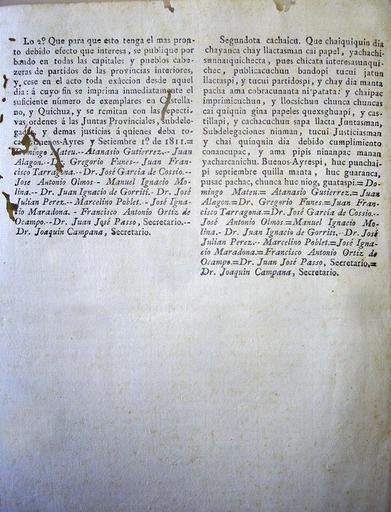 Lo 2º Que para que esto tenga el mas pron-
to debido efecto que interesa, se publique por
bando en todas las capitales y pueblos cabe-
zeras de partidos de las provincias interiores,
y, cese en el acto toda exâccion desde aquel
dia: á cuyo fin se imprima inmediatamente el
suficiente número de exemplares en Castella-
no, y Quichua, y se remitan con las respecti-
vas ordenes á las Juntas Provinciales, subdele-
gados, y demas justicias á quienes deba to-
car. Buenos-Ayres y Setiembre 1º de 1811.=
Domingo Mateu.--Atanasio Gutierrez.--Juan
Alagon.--Dr. Gregorio Funes--Juan Fran-
cisco Tarragona.--Dr. José Garcia de Cossio.--
Jose Antonio Olmos - Manuel Ignacio Mo-
lina.-- Dr. Juan Ignacio de Gorriti.- Dr. José
Julian Perez.-- Marcelino Poblet.- José Igna-
cio Maradona. - Francisco Antonio Ortiz de
Ocampo.--Dr. Juan José Passo, Secretario.--
Dr. Joaquin Campana, Secretario.
Segundota cachaicu. Que chaiquiquin dia
chayanca chay llactasman cai papel, yachachi-
sunnaiquichecta, pues chicata interesasunqui-
chec, publicacuchun bandopi tucui jatun
llactaspi, y tucui partidospi, y chay dia manta
pacha ama cobracunanta ni'patata: y chaipac
imprimicuchun, y llocsichun chunca chuncas
cai quiquin gina papeles quexsghuapi, y cas-
tillapi, y cachacuchun sapa llacta Juntasman,
Subdelegaciones ninman, tucui Justiciasman
y chai quinquin dia debido cumplimiento
conancupac, y ama pipis ninanpac manan
yacharcanichu. Buenos-Ayrespi, huc punchai-
pi septiembre quilla manta, huc guaranca,
pusac pachac, chunca huc niog, guataspi.=Do-
mingo Mateu= Atanasio Gutierrez.=Juan
Alagon.=Dr. Gregorio Funes.=Juan Fran-
cisco Tarragona.=Dr. José García de Cossio.=
José Antonio Olmos.=Manuel Ignacio Mo-
lina.- Dr. Juan Ignacio de Gorriti.=Dr. José
Julian Perez.--Marcelino Poblet.=José Igna-
cio Maradona.=Francisco Antonio Ortiz de
Ocampo.=Dr. Juan José Passo, Secretario.=
Dr. Joaquin Campana, Secretario.